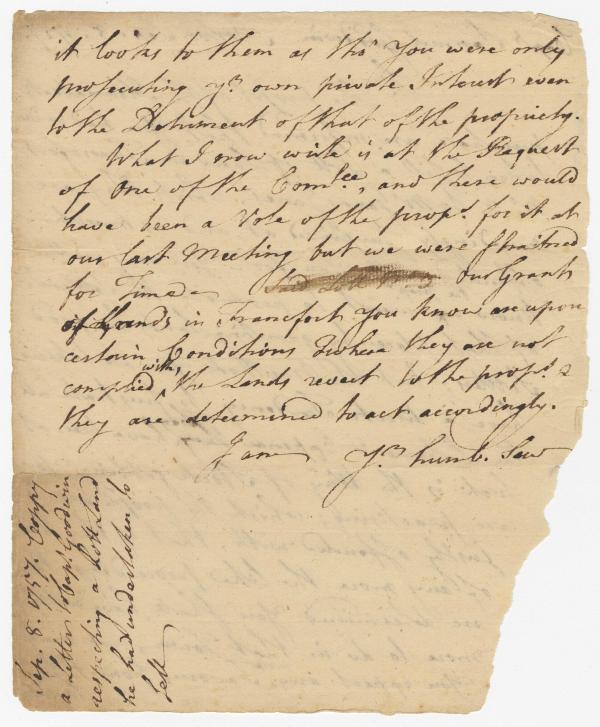 it looks to them as tho' You were only
prosecuting yr. own private Interest even
to the Detriment of that of the propriety.
What I now write is at the Request
of one of the Comtee, and there would
have been a Vote of the propr. for it at
our last Meeting but we were straitned
for Time. Our Grants
of Lands in Francfort You know are upon
certain Conditions & where they are not
complied with, the Lands revert to the propr. &
they are determined to act accordingly.
I am Yr. humb. Serv
Sep. 8. 1757. Coppy
a Letter to Capt. Goodwin
respecting a Lott Land
he had undertaken to
sell